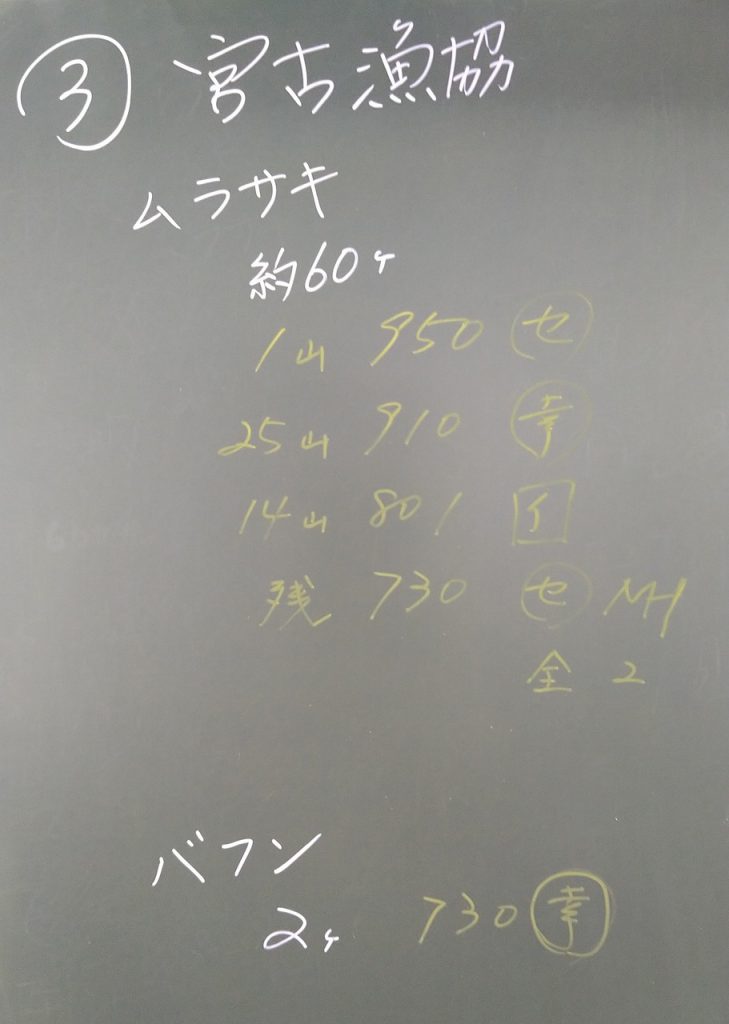 ③ 宮古漁協
ムラサキ
約60ヶ
1山 950 ㋝
25山 910 幸
14山 801 イ
残 730 ㋝ MH
全 2
バフン
2ヶ 730 幸